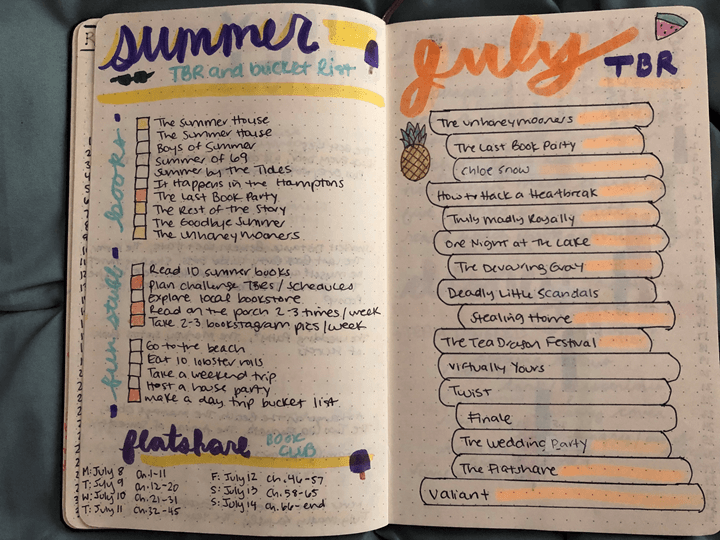 summer
TBR and bucket list
books
The Summer House
The Summer House
Boys of Summer
Summer of 69
Summer by The Tides
It Happens in the Hamptons
The Last Book Party
The Rest of the Story
The Goodbye Summer
The Unhoneymooners
fun stuff
Read 10 summer books
plan challenge TBRs / schedules
Explore local bookstore
Read on the porch 2-3 times / week
Take 2-3 bookstagram pics / week
Go to the beach
Eat 10 lobster rolls
Take a weekend trip
Host a house party
make a day trip bucket list
flatshare BOOK CLUB
M: July 8 Ch. 1-11
T: July 9 Ch. 12-20
W: July 10 Ch. 21-31
T: July 11 Ch. 32-45
F: July 12 Ch. 46-57
S: July 13 Ch. 58-65
S: July 14 Ch. 66-end
july
TBR
The Unhoneymooners
The Last Book Party
Chloe Snow
How to Hack a Heartbreak
Truly Madly Royally
One Night at the Lake
The Devouring Gray
Deadly Little Scandals
Stealing Home
The Tea Dragon Festival
Virtually Yours
Twist
Finale
The Wedding Party
The Flatshare
Valiant